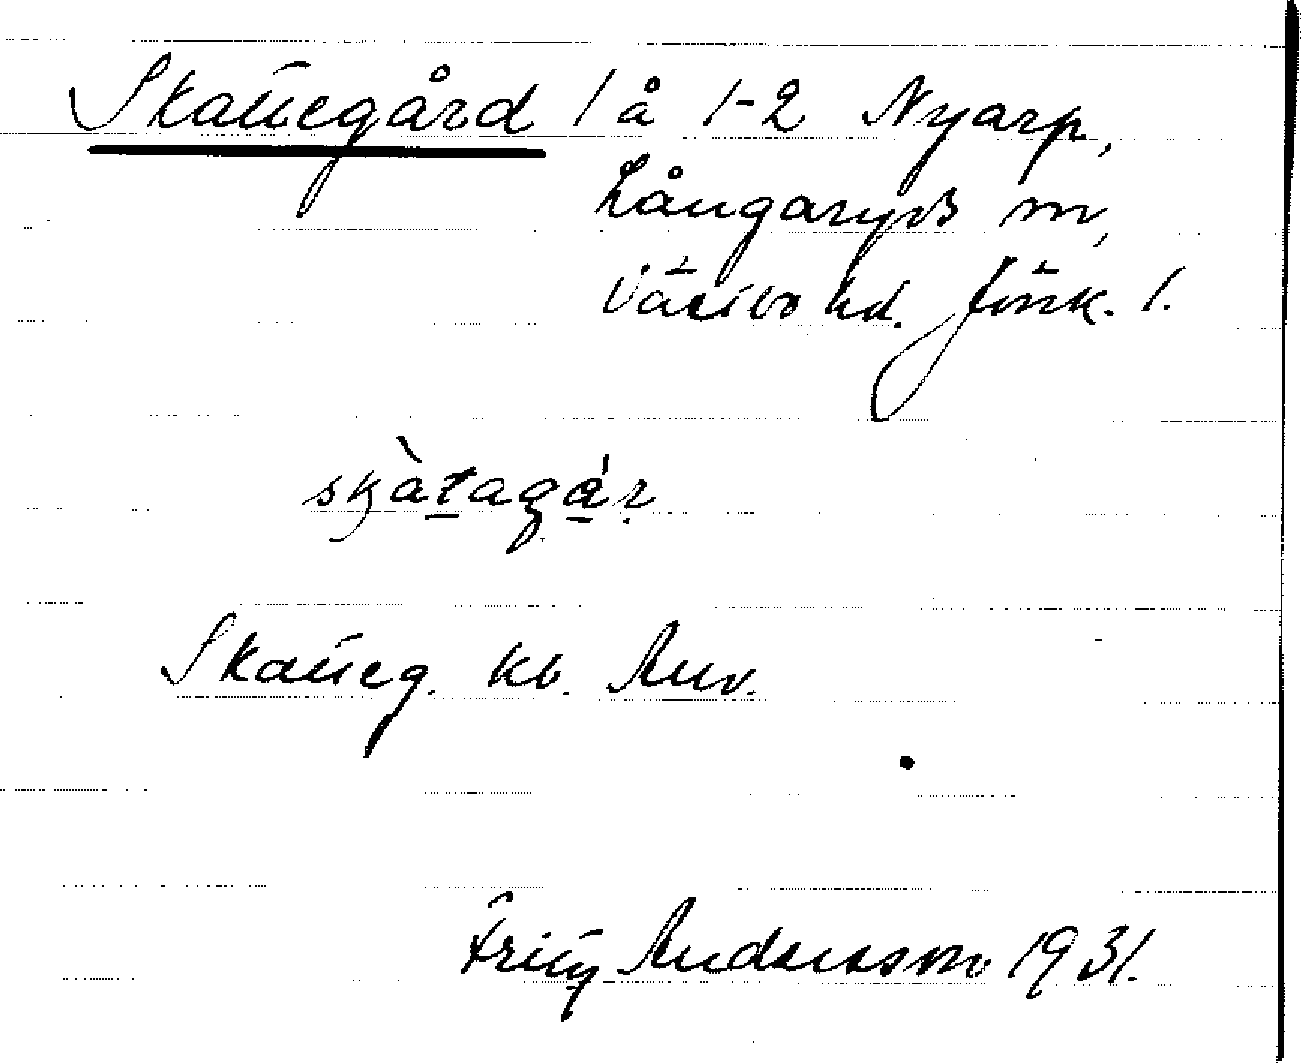 Skattegård 1 å 1-2 Nyarp,
Långaryds sn,
Västbo hd. Jönk. l.
skàtagár
Skatteg. kb. Anv.
Fritz Andersson 1931.